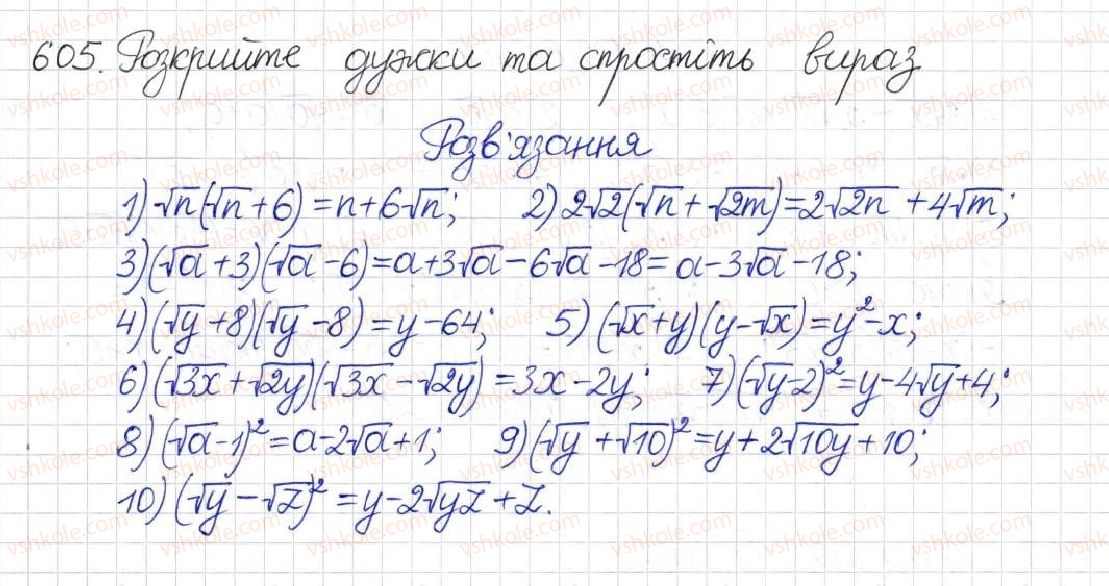 605. Розкрийте дужки та спростіть вираз
Розв'язання
1) √n(√n+6)=n+6√n; 2) 2√2(√n+√2m)=2√2n+4√m;
3)(√a+3)(√a-6)=a+3√a-6√a-18=a-3√a-18;
4)(√y+8)(√y-8)=y-64; 5) (√x+y)(y-√x)=y²-x;
6)(√3x+√2y)(√3x-√2y)=3x-2y; 7)(√y-2)²=y-4√y+4;
8)(√a-1)²=a-2√a+1; 9)(√y+√10)²=y+2√10y+10;
10)(√y-√z)²=y-2√yz+z.
vshkole.com